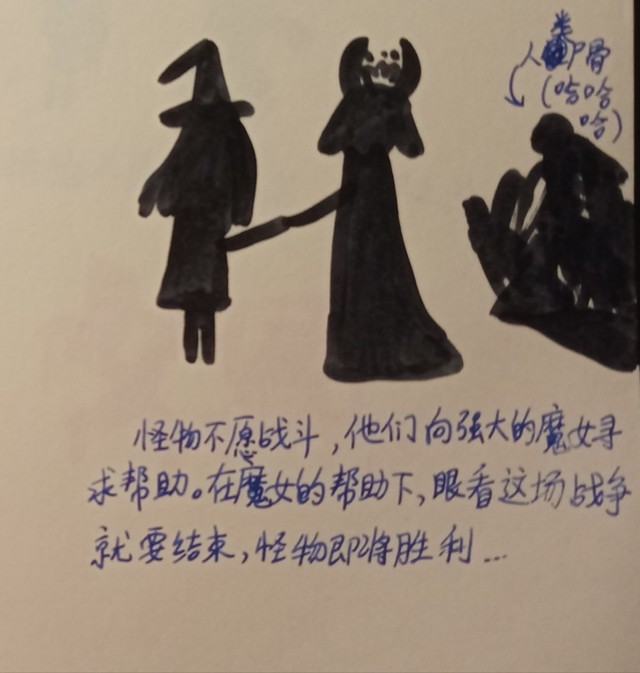 人类尸骨
(哈哈
哈)
怪物不愿战斗,他们向强大的魔女寻
求帮助。在魔女的帮助下,眼看这场战争
就要结束,怪物即将胜利...